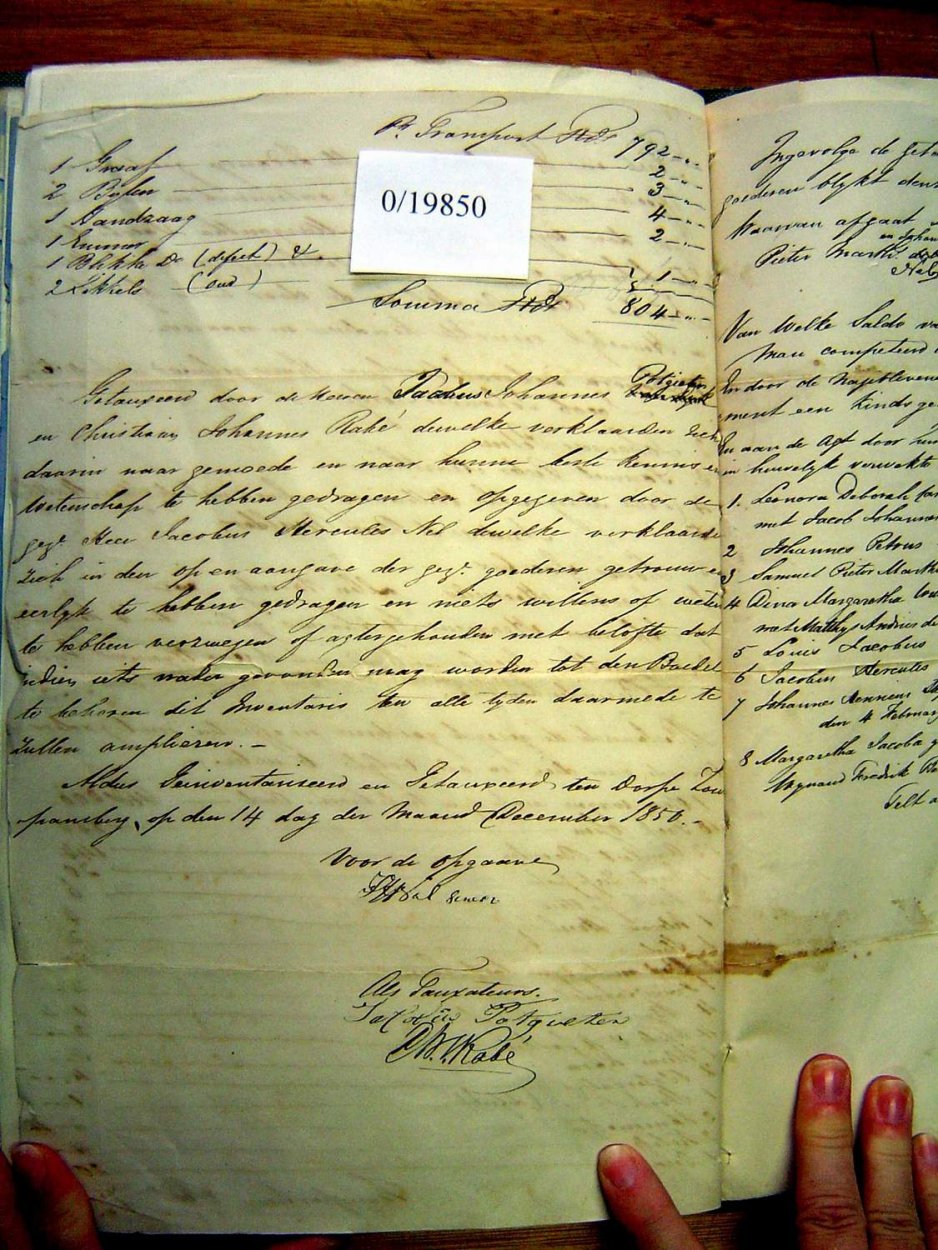 Pr Transport Rds 792 - "
1 Graaf 2 - "
2 Bylen 3 - "
1 Handzaag 4 - "
1 Emmer 2 - "
1 Blikke Do (defect) &.
2 Sikkels (oud) 1 - "
Somma Rds 804 - "
0/19850
Getauxeerd door de Heeren Jacobus Johannes Potgieter
en Christiaan Johannes Rabé dewelke verklaarden zich
daarin naar gemoede en naar hunne beste kennis en
wetenschap te hebben gedragen en opgegeven door de
gezr. Heer Jacobus Hercules Nel dewelke verklaarde
zich in den op en aangave der gezr. goederen getrouw en
eerlyk te hebben gedragen en niets willens of weten
te hebben verzwegen of agtergehouden met belofte dat
indien iets nader gevonden mag worden tot den Boedel
te behoren dit Inventaris ten alle tyden daarmede te
zullen amplieren. -
Aldus Geinventariseerd en Getauxeerd, ten Dorpe Zou
pansberg, op den 14 dag der Maand December 1850. -
Voor de opgaave
Als Tauxateurs.
Potgieter
Rabé
Ingevolge de Get
goederen blykt den
Waarvan afgaat
Pieter Marth
Van Welke Saldo
Man competeerd
En door de Najeblevene
ment een Kinds ge
En aan de Agt door
in huwelyk verwekte
1. Leonora Deborah
met Jacob Johannes
2 Johannes Petrus
3 Samuel Pieter
4 Dina Margaretha
met Matthys Andries de
5 Louis Jacobus
6 Jacobus Hercules
7 Johannes
den 4 Februar
8 Margaretha Jacoba
Wynand Fredrik
Telt